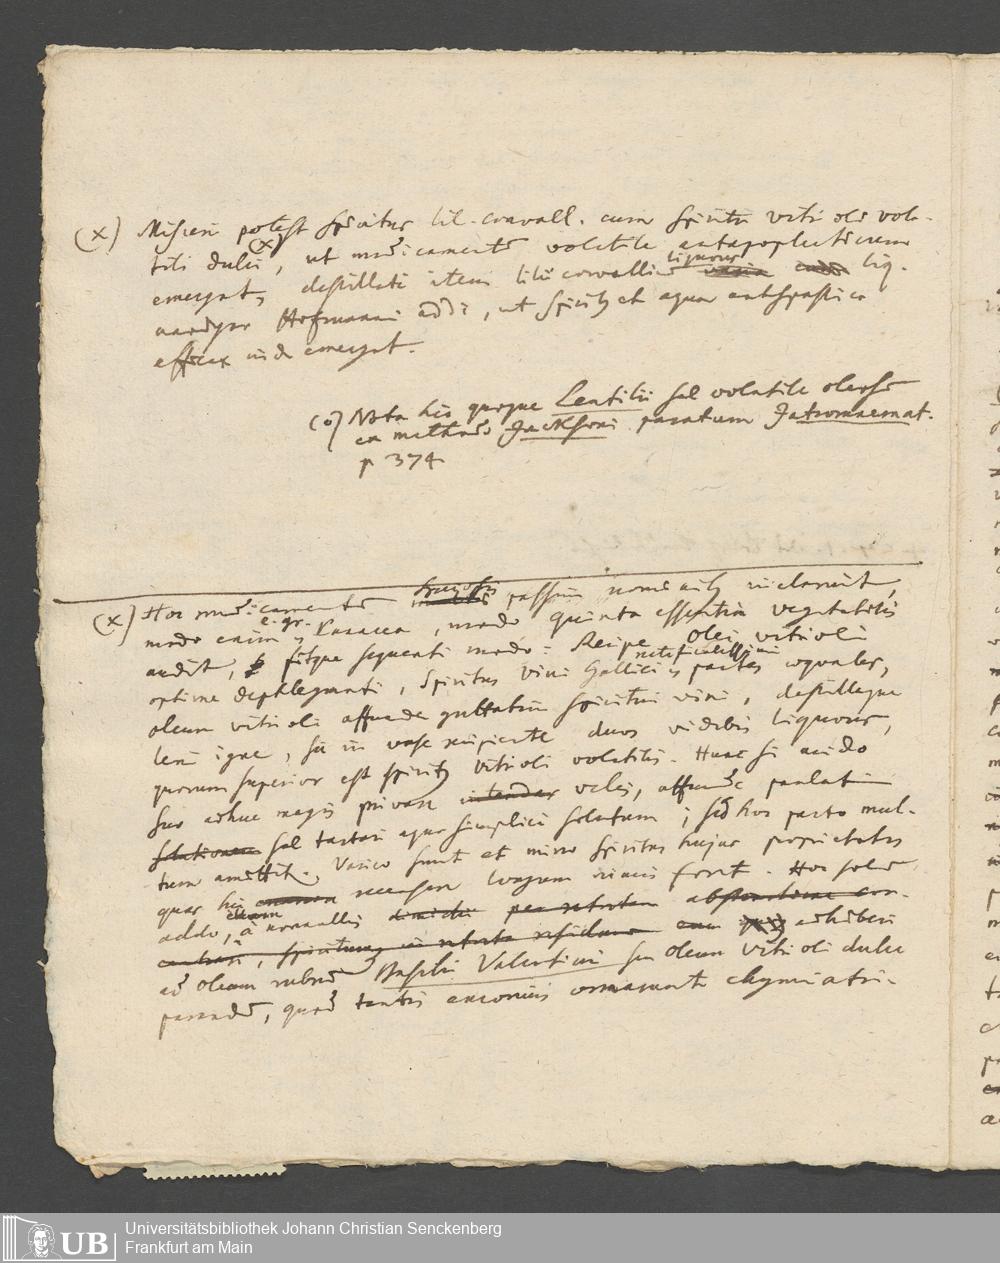 (x) Misceri potest spiritus lil. convall. cum spiritu vitrioli vola-
tili dulci (x), ut medicamentum volatile antapoplecticum
emergat, destillati item lilii convallium liquoris liq.
anodyn. Hofmanni addi, ut spiritus et aqua antispastica
efficax inde emergat.
(o) Nota hic quoque Lentilii sal volatile oleosum
ex methodo Jacksoni paratum Jatromnemat.
p 374
(x) Hoc medicamentum passim nominibus inclarint,
modo enim e. gr. Panacea, modo quinta essentia vegetabilis
audit, fitque sequenti modo: Recipe Olei vitrioli
optime dephlegmati, Spiritus Vini Gallici rectificatissimi partes aequales,
oleum vitrioli affunde guttatim spiritui vini, destilleque
leni igne, sic in vase recipiente duos videbis liquores,
quorum superior est spiritus Vitrioli volatilis. Hunc si acido
suo adhuc magis privare velis, affunde paulatim
sal tartari aqua simplici solutum; sed hoc pacto mul-
tum amittit. Varico sunt et mirae spiritus hujus proprietates
quas hic recensere longum nimis foret. Hoc solum
addo, etiam a nonnullis adhiberi
ad oleum rubrum Basilii Valentini seu oleum Vitrioli dulce
parandum, quod tantis encomiis ornarunt chymiatri.
UB
Universitätsbibliothek Johann Christian Senckenberg
Frankfurt am Main